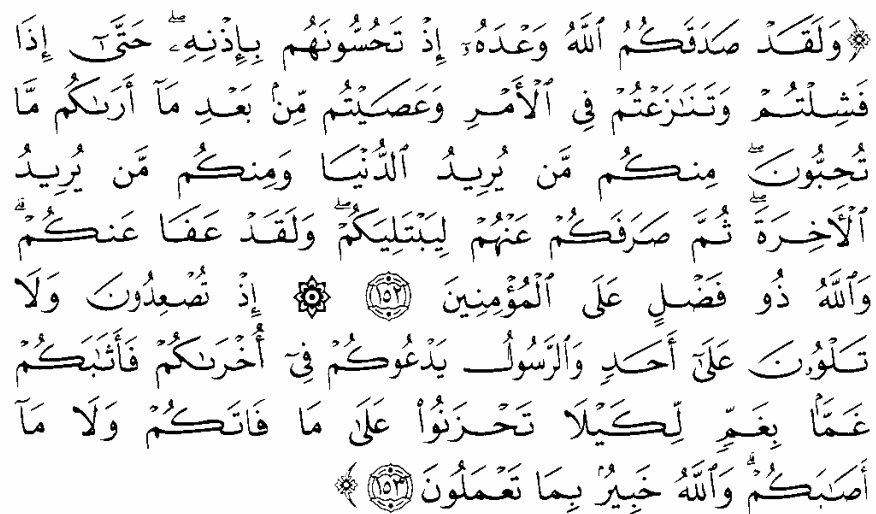 ﴿ وَلَقَدْ صَدَقَكُمُ ٱللَّهُ وَعْدَهُۥٓ إِذْ تَحُسُّونَهُم بِإِذْنِهِۦۖ حَتَّىٰٓ إِذَا
فَشِلْتُمْ وَتَنَٰزَعْتُمْ فِى ٱلْأَمْرِ وَعَصَيْتُم مِّنۢ بَعْدِ مَآ أَرَىٰكُم مَّا
تُحِبُّونَۚ مِنكُم مَّن يُرِيدُ ٱلدُّنْيَا وَمِنكُم مَّن يُرِيدُ
ٱلْأَخِرَةَۚ ثُمَّ صَرَفَكُمْ عَنْهُمْ لِيَبْتَلِيَكُمْۖ وَلَقَدْ عَفَا عَنكُمْۗ
وَٱللَّهُ ذُو فَضْلٍ عَلَى ٱلْمُؤْمِنِينَ ١٥٢ ۞ إِذْ تُصْعِدُونَ وَلَا
تَلْوُۥنَ عَلَىٰٓ أَحَدٍ وَٱلرَّسُولُ يَدْعُوكُمْ فِىٓ أُخْرَىٰكُمْ فَأَثَٰبَكُمْ
غَمًّۢا بِغَمٍّ لِّكَيْلَا تَحْزَنُوا۟ عَلَىٰ مَا فَاتَكُمْ وَلَا مَآ
أَصَٰبَكُمْۗ وَٱللَّهُ خَبِيرٌۢ بِمَا تَعْمَلُونَ ١٥٣ ﴾